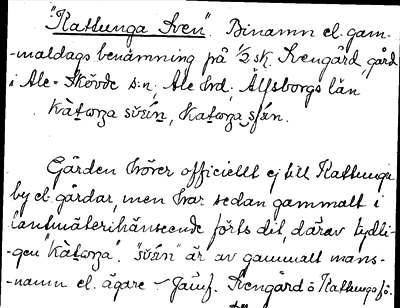 "Kattunga Sven". Binamn el. gam-
-maldags benämning på 1/2 sk. Svengård, gård
i Ale-Skövde s:n, Ale hd, Älfsborgs län
Gården hörer officiellt ej till Kattunga
by el. gårdar, men har sedan gammalt i
lantmäterihänseende förts dit, därav tydli-
-gen är av gammalt mans-
-namn el. ägare – Jämf. Svengård o Kattunga